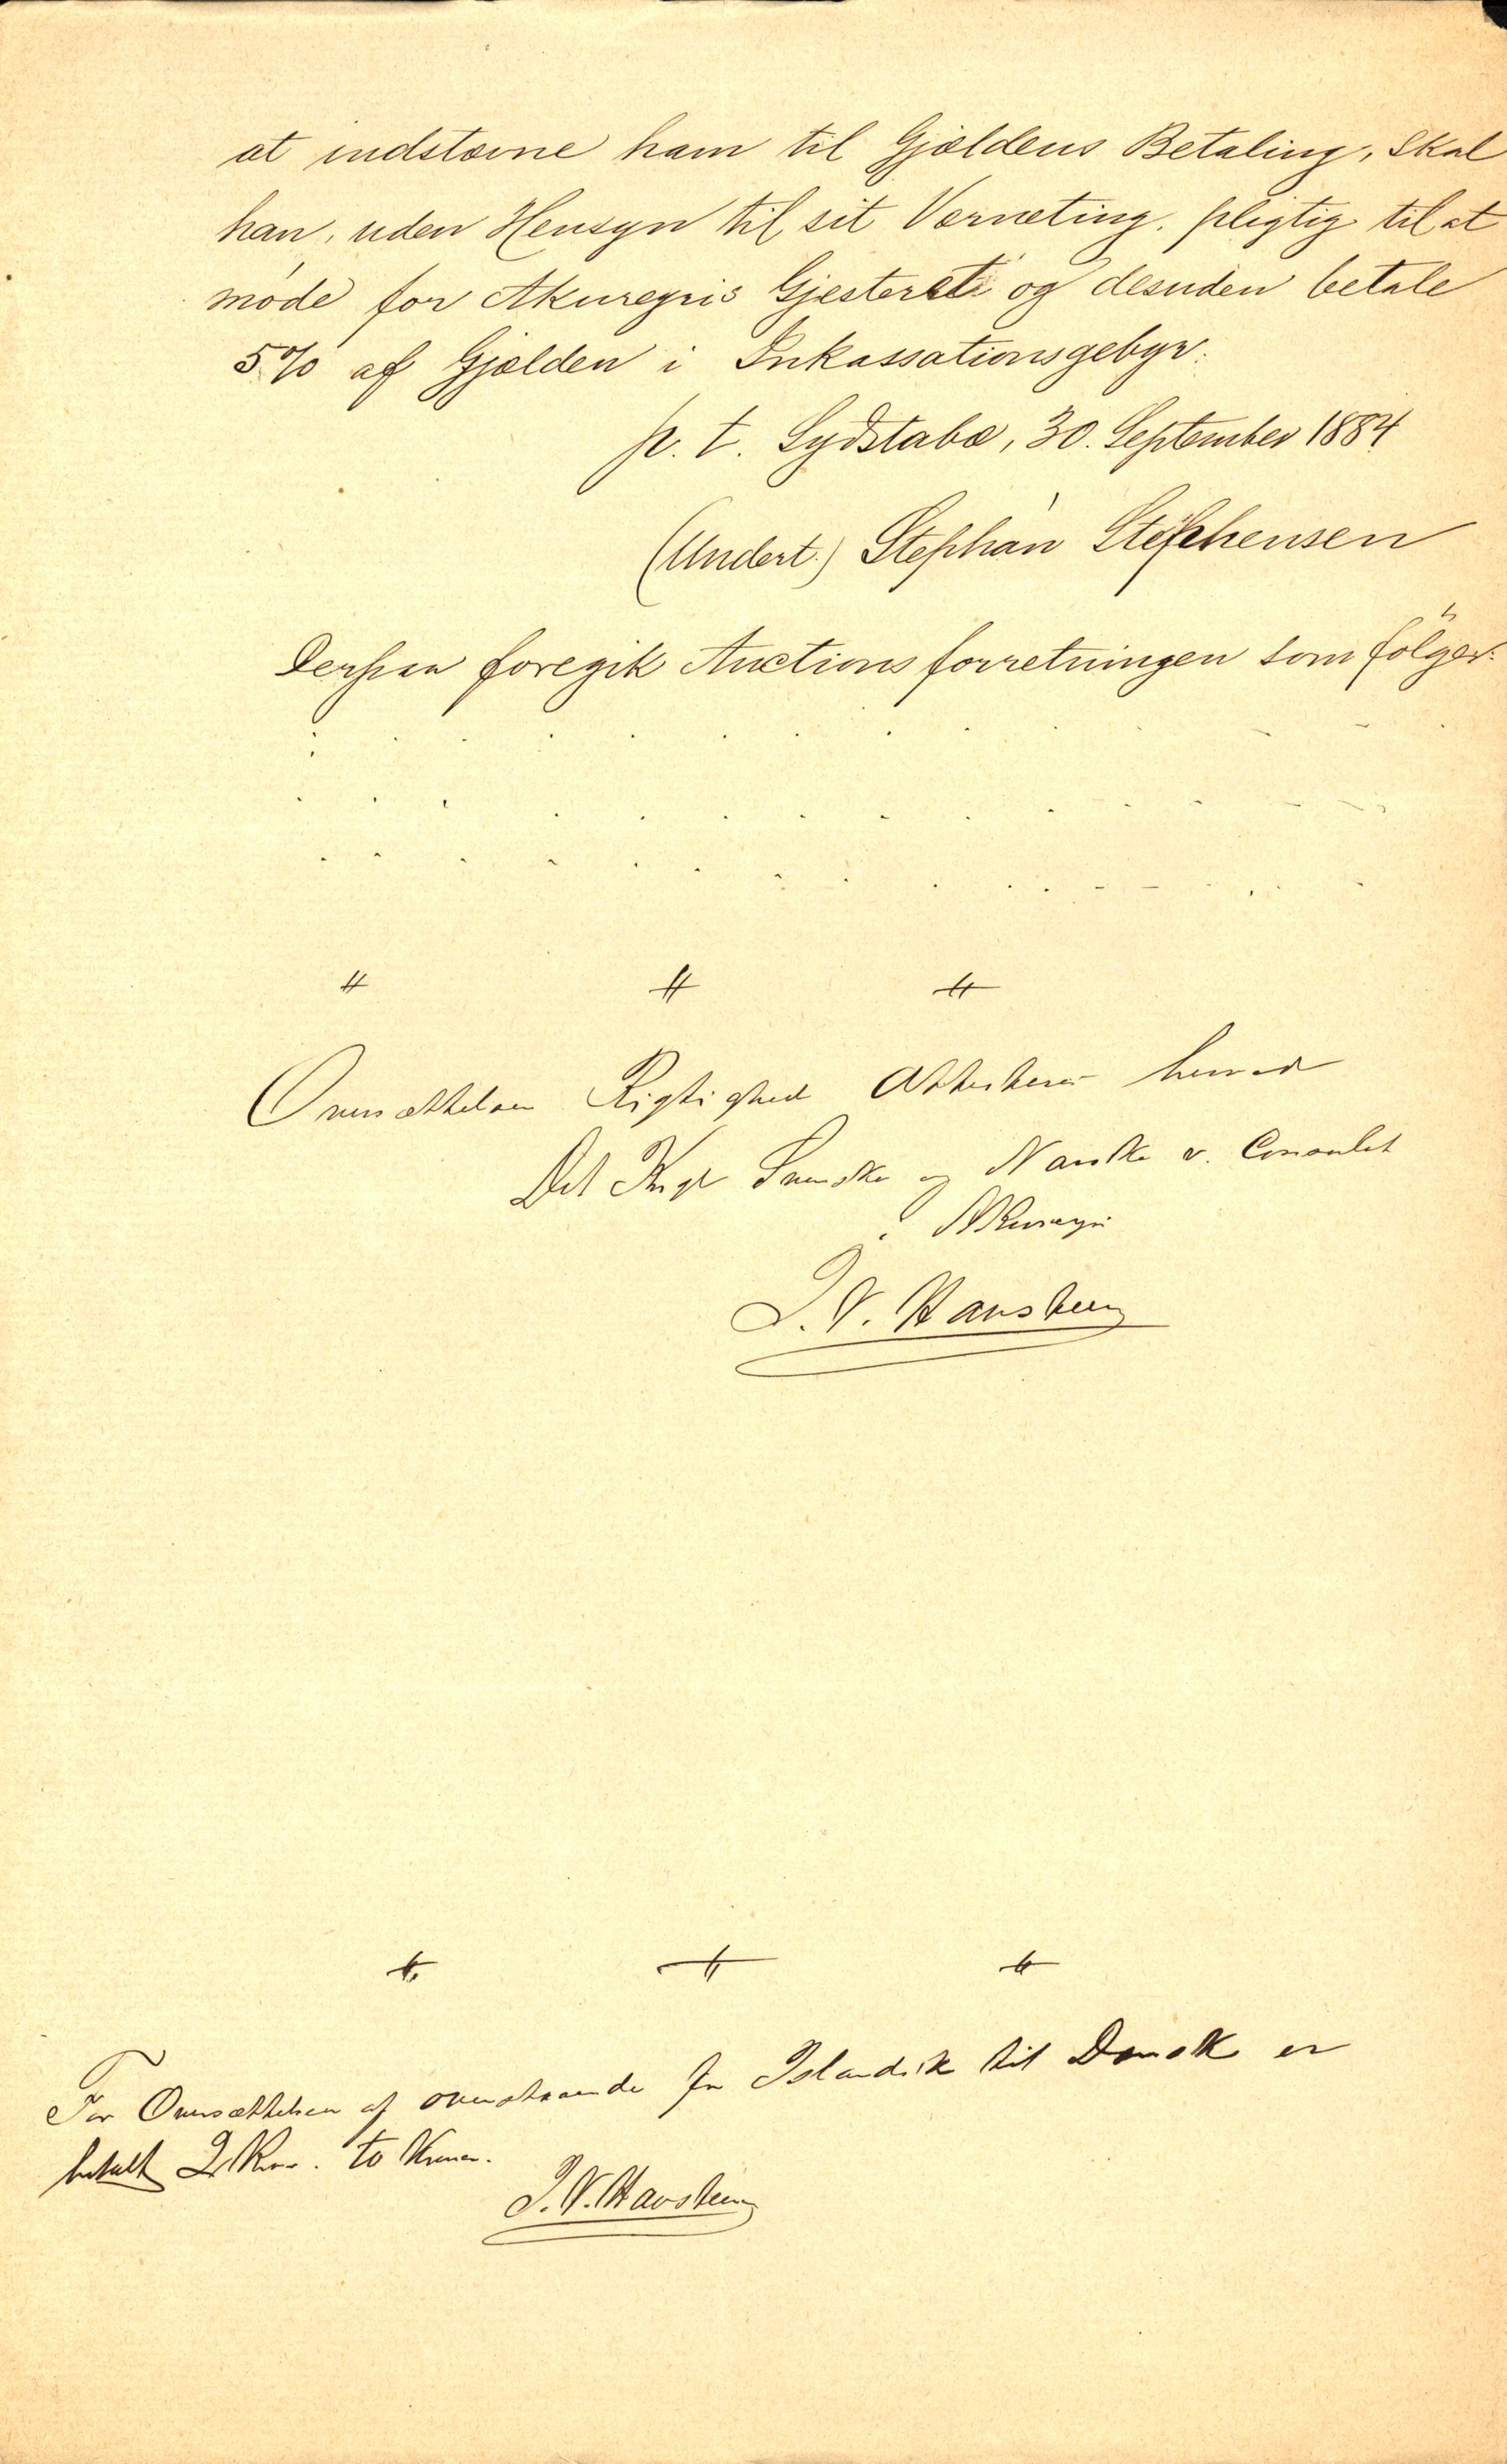 at indstævne ham til Gjældens Betaling, skal
han, uden Hensyn til sit Værneting, pligtig til at
møde for Akureyris Gjesteret og desuden betale
5% af Gjælden i Inkassationsgebyr.
p. t. Sydstabæ, 30. September 1884
(Undert.) Stephán Stephensen
Derpaa foregik Auctionsforretningen som følger:
Oversættelsen Rigtighed Attesteres herved
Det Kngl Svenske og Norske v. Consulat
i Akureyri
J. V. Havsteen
For Oversættelsen af ovenstaaende fra Islandsk til Dansk er
betalt 2 Kr. to Kroner.
J. V. Havsteen